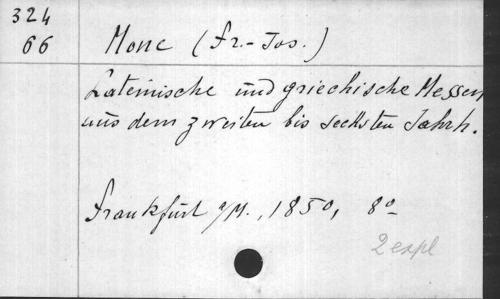 324
66
Mone (Fr.-Jos.)
Lateinische und griechische Messen
aus dem zweiten bis sechsten Jahrh.
Frankfurt a/M., 1850, 8º
2 expl